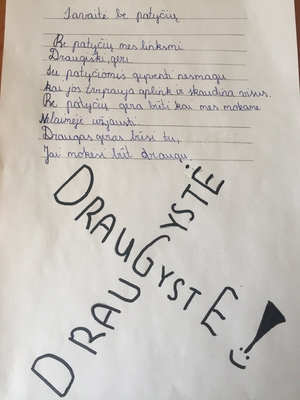 Savaitė be patyčių
Be patyčių mes linksmi
Draugiški, geri
Su patyčiomis gyventi nesmagu
kai jos žvejrauja aplink ir skaudina visus.
Be patyčių gera būti kai mes mokame
Nelaimėje užjausti
Draugas geras būsi tu,
Jai mokėsi būt draugu.
DRAUGYSTĖ
DRAUGYSTĖ!